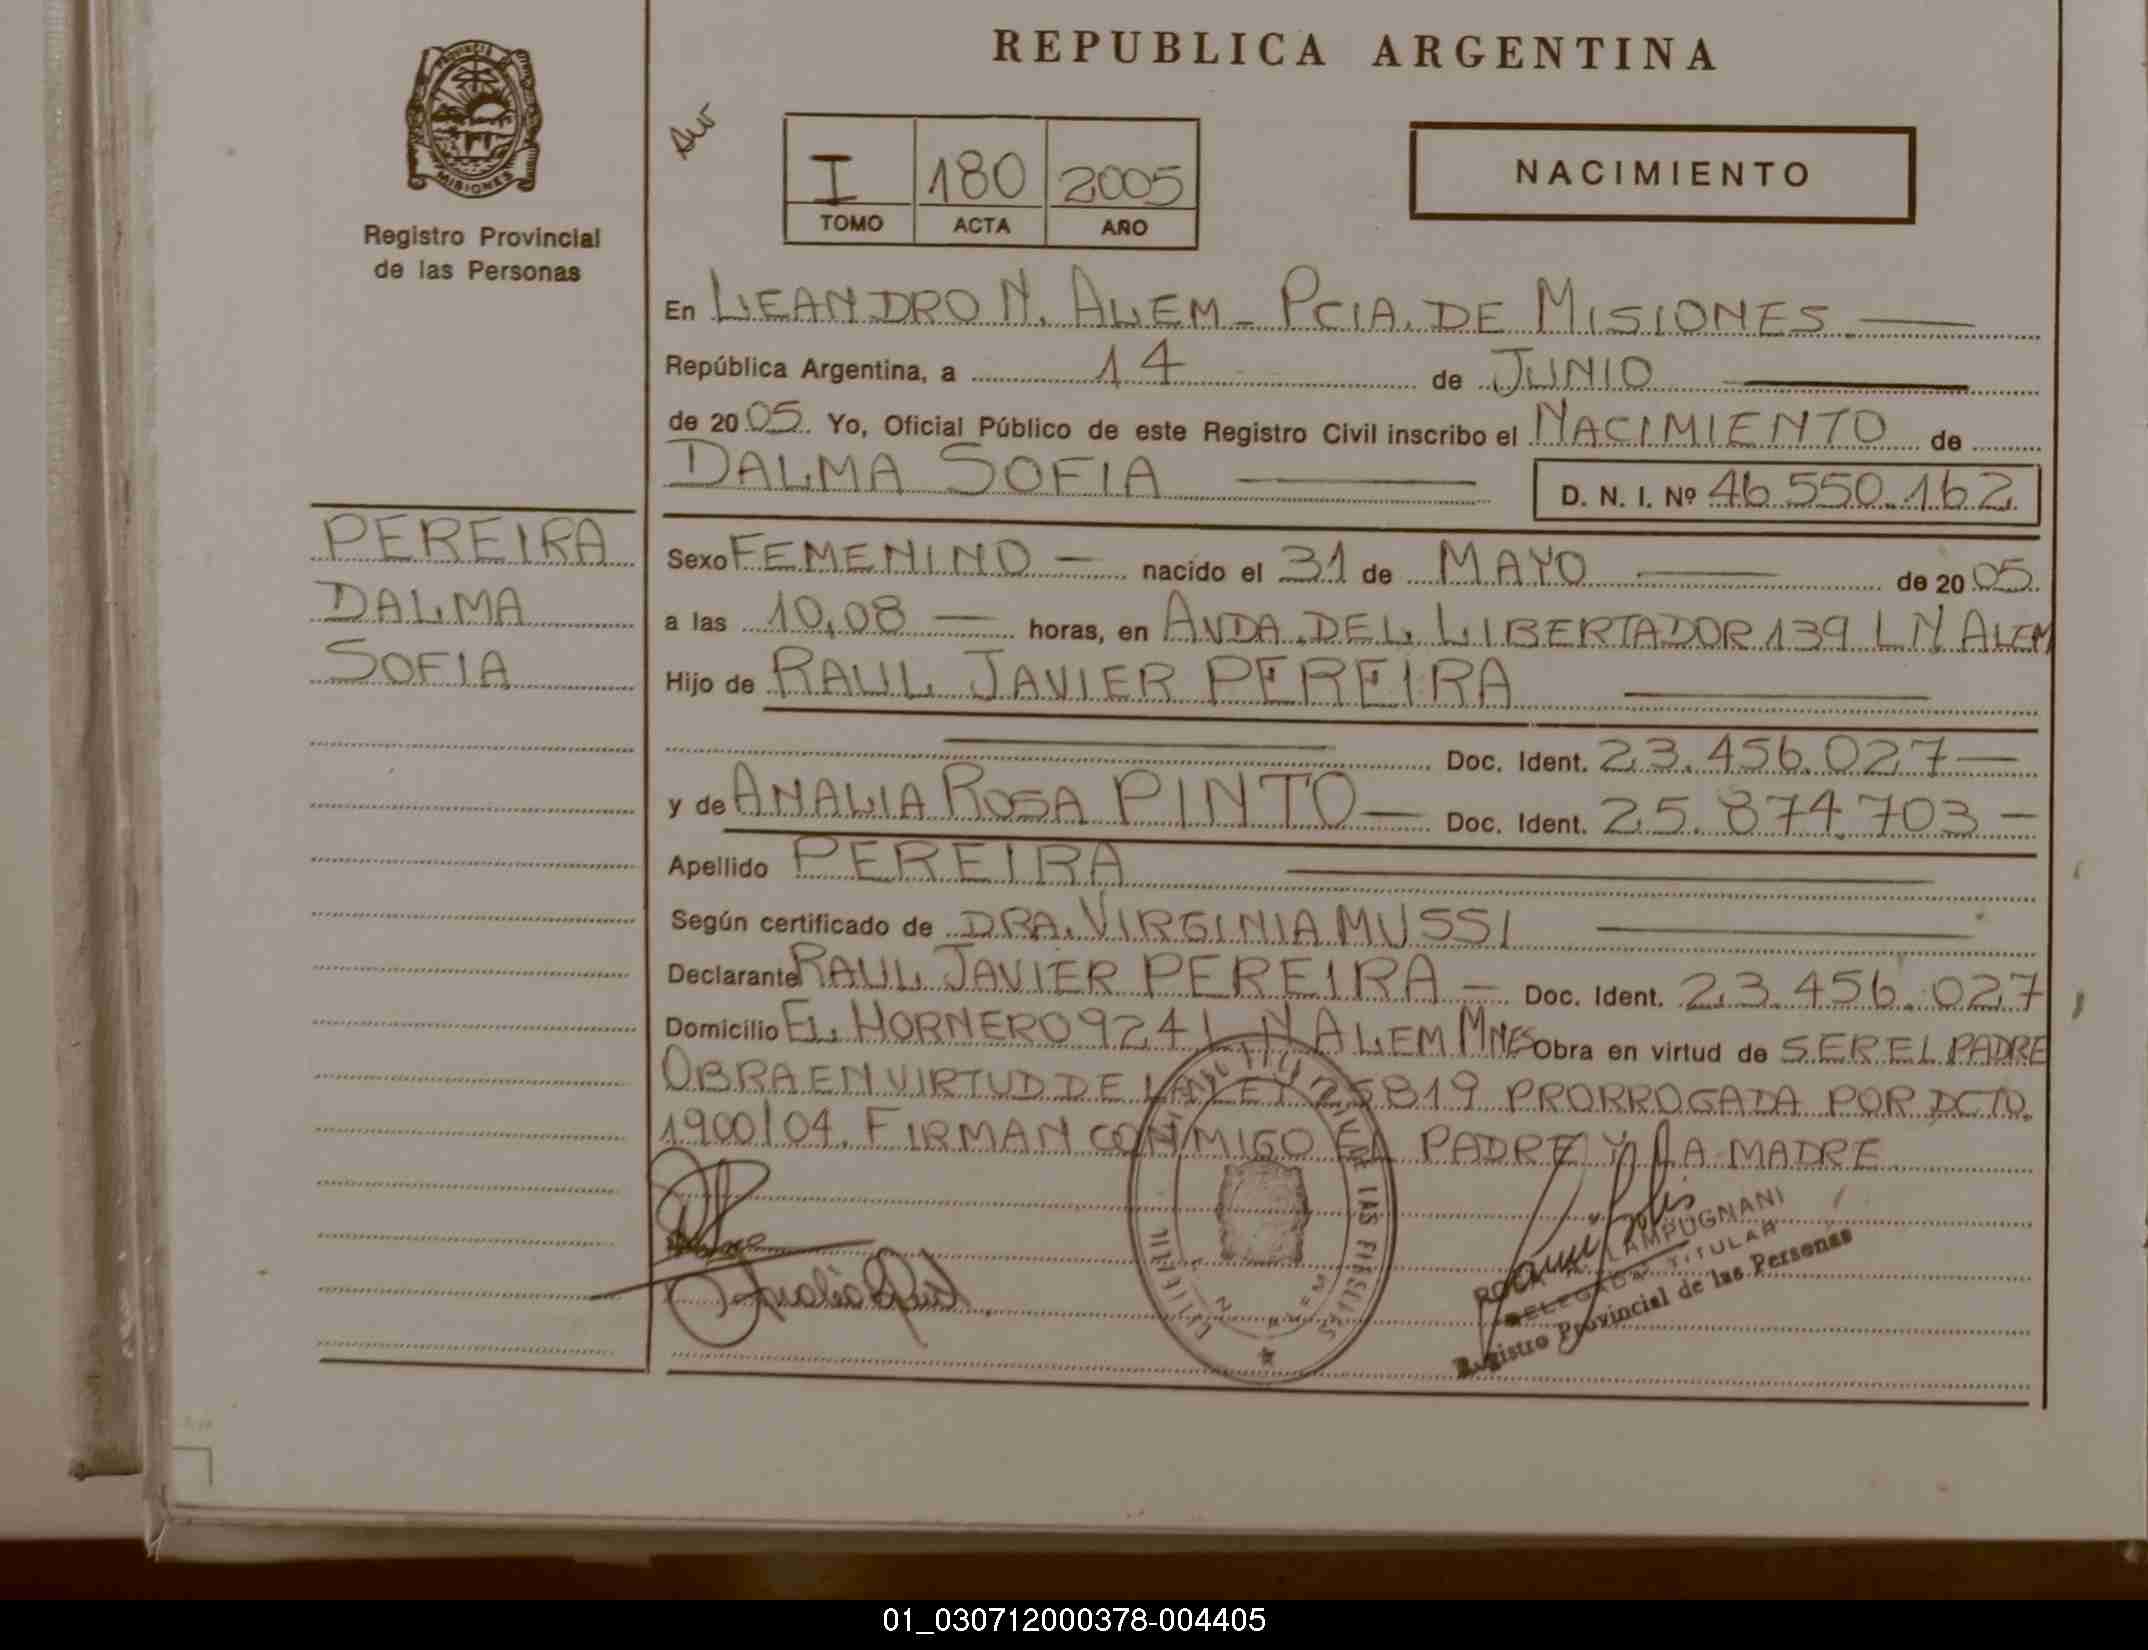 REPUBLICA ARGENTINA
PROVINCIA DE
MISIONES
Registro Provincial
de las Personas
I 180 2005
TOMO ACTA AÑO
NACIMIENTO
En LEANDRO N. ALEM - PCIA. DE MISIONES
República Argentina, a 14 de JUNIO
de 2005. Yo, Oficial Público de este Registro Civil inscribo el NACIMIENTO de
DALMA SOFIA D. N. I. Nº 46.550.162
PEREIRA
DALMA
SOFIA
Sexo FEMENINO - nacido el 31 de MAYO de 2005.
a las 10,08 horas, en AVDA. DEL LIBERTADOR 139 L N ALEM
Hijo de RAUL JAVIER PEREIRA
Doc. Ident. 23.456.027
y de ANALIA ROSA PINTO Doc. Ident. 25.874.703
Apellido PEREIRA
Según certificado de DRA. VIRGINIA MUSSI
Declarante RAUL JAVIER PEREIRA - Doc. Ident. 23.456.027
Domicilio EL HORNERO 924 L N ALEM MNES Obra en virtud de SER EL PADRE
OBRA EN VIRTUD DE LA LEY 25819 PRORROGADA POR DCTO.
1900/04. FIRMAN CONMIGO EL PADRE Y LA MADRE
LAMPUGNANI
DELEGADA TITULAR
Registro Provincial de las Personas
01_030712000378-004405